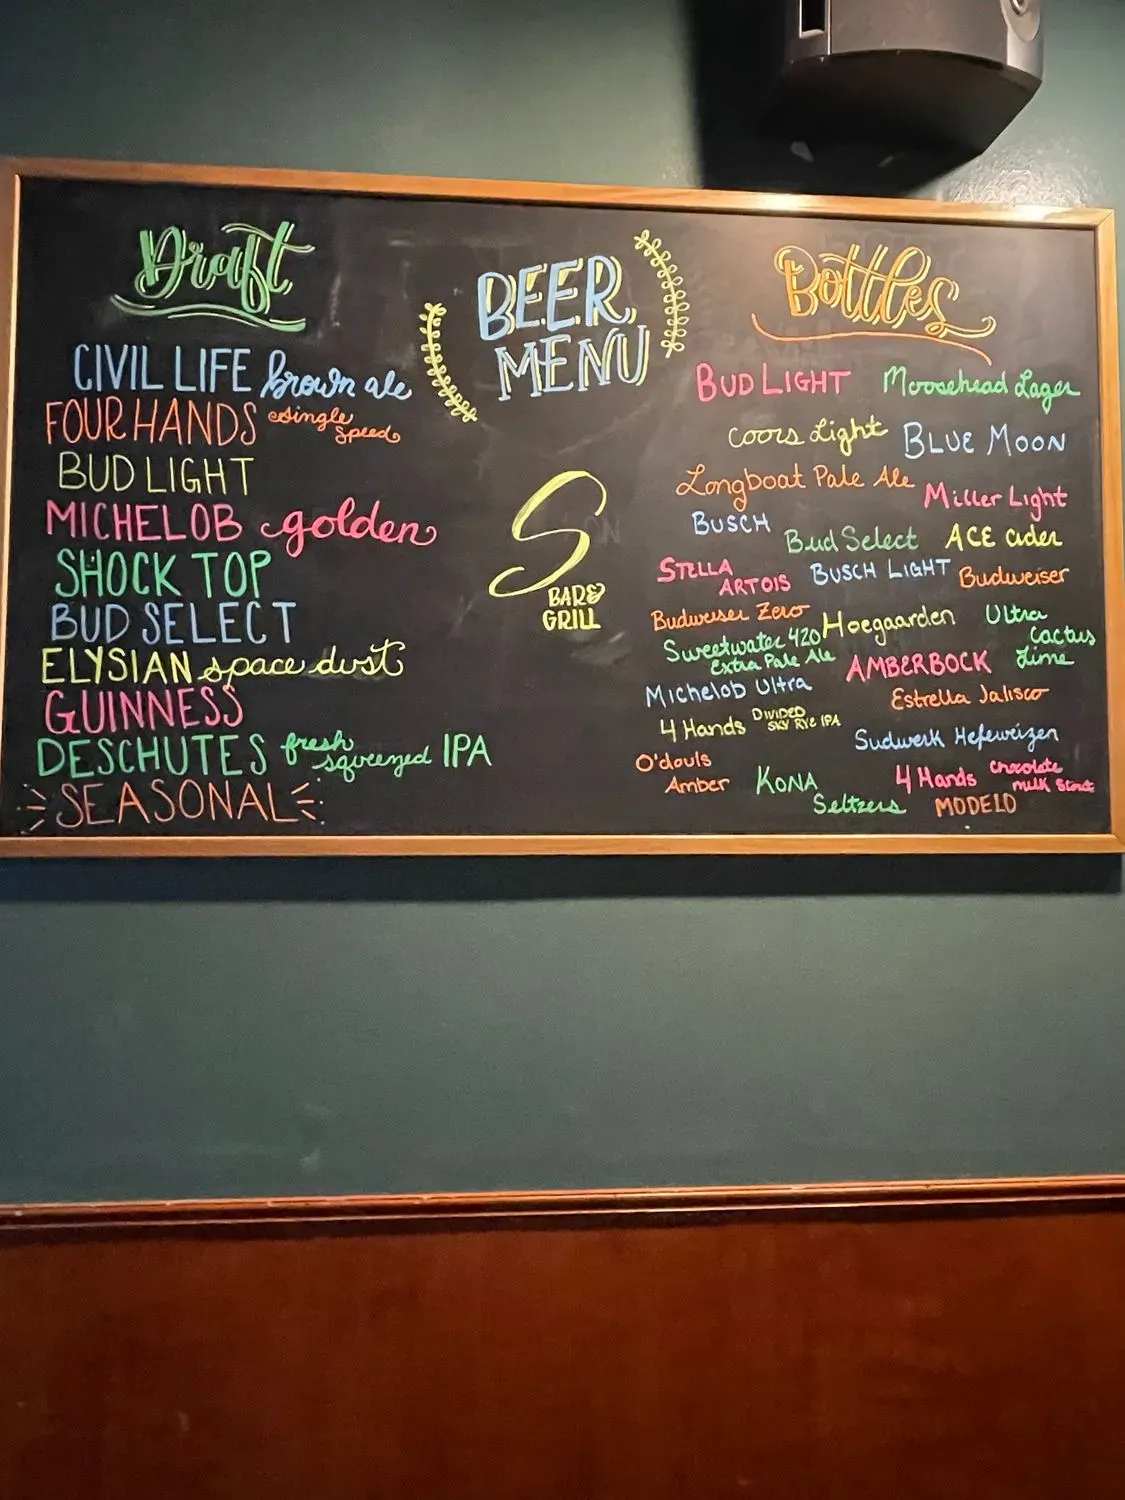 Draft
CIVIL LIFE brown ale
FOUR HANDS single speed
BUD LIGHT
MICHELOB golden
SHOCK TOP
BUD SELECT
ELYSIAN space dust
GUINNESS
DESCHUTES fresh squeezed IPA
SEASONAL
BEER
MENU
S
BAR &
GRILL
Bottles
BUD LIGHT Moosehead Lager
Coors Light BLUE MOON
Longboat Pale Ale Miller Light
BUSCH Bud Select ACE cider
STELLA
ARTOIS BUSCH LIGHT Budweiser
Budweiser Zero Hoegaarden Ultra
Cactus
Lime
Sweetwater 420
Extra Pale Ale AMBERBOCK
Michelob Ultra Estrella Jalisco
4 Hands DIVIDED
SKY RYE IPA Sudwerk Hefeweizen
O'douls
Amber KONA 4 Hands Chocolate
milk Stout
Seltzers MODELO